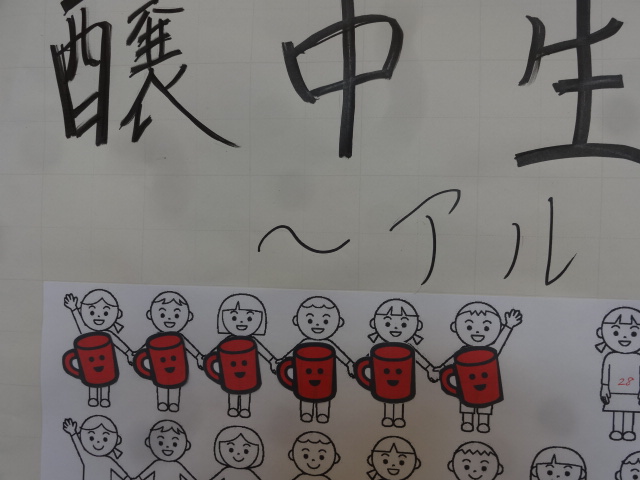 醸中生
～アル
28